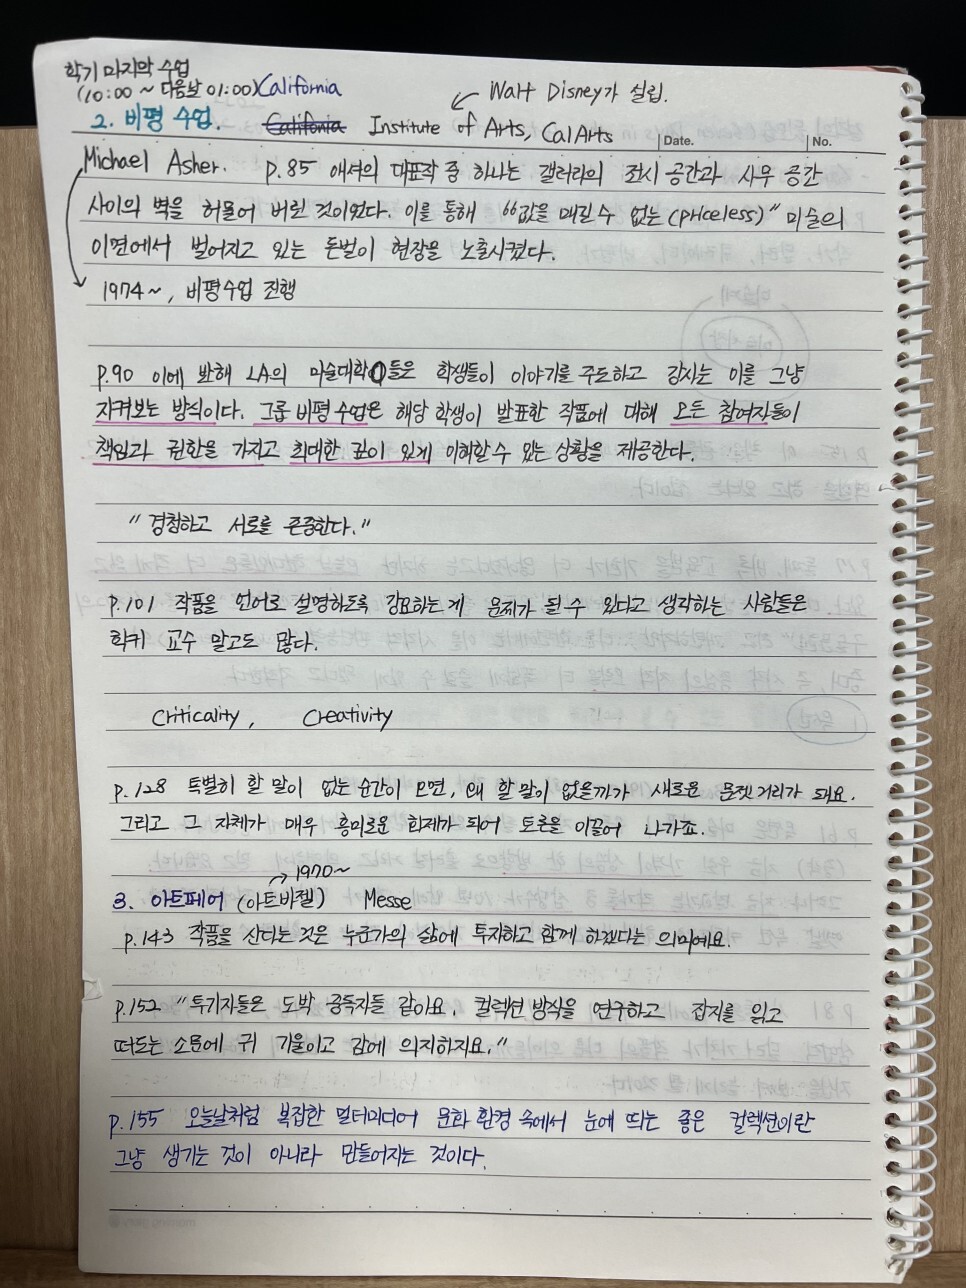 학기 마지막 수업
(10:00 ~ 다음날 01:00) California
Walt Disney가 설립.
2. 비평 수업. Califonia Institute of Arts, CalArts
Date. No.
Michael Asher. p.85 애셔의 대표작 중 하나는 갤러리의 전시 공간과 사무 공간
사이의 벽을 허물어 버린 것이었다. 이를 통해 "값을 매길 수 없는(priceless)" 미술의
이면에서 벌어지고 있는 돈벌이 현장을 노출시켰다.
1974~, 비평수업 진행
p.90 이에 반해 LA의 미술대학이들은 학생들이 이야기를 주도하고 강사는 이를 그냥
지켜보는 방식이다. 그룹 비평 수업은 해당 학생이 발표한 작품에 대해 모든 참여자들이
책임과 권한을 가지고 최대한 깊이 있게 이해할 수 있는 상황을 제공한다.
"경청하고 서로를 존중한다."
p.101 작품을 언어로 설명하도록 강요하는 게 문제가 될 수 있다고 생각하는 사람들은
학키 교수 말고도 많다.
Criticality, Creativity
p.128 특별히 할 말이 없는 순간이 오면, 왜 할 말이 없을까가 새로운 문젯거리가 돼요.
그리고 그 자체가 매우 흥미로운 화제가 되어 토론을 이끌어 나가죠.
1970~
3. 아트페어 (아트바젤) Messe
p.143 작품을 산다는 것은 누군가의 삶에 투자하고 함께 하겠다는 의미예요.
p.152 "투기자들은 도박 중독자들 같아요. 컬렉션 방식을 연구하고 잡지를 읽고
떠도는 소문에 귀 기울이고 감에 의지하지요."
p.155 오늘날처럼 복잡한 멀티미디어 문화 환경 속에서 눈에 띄는 좋은 컬렉션이란
그냥 생기는 것이 아니라 만들어지는 것이다.